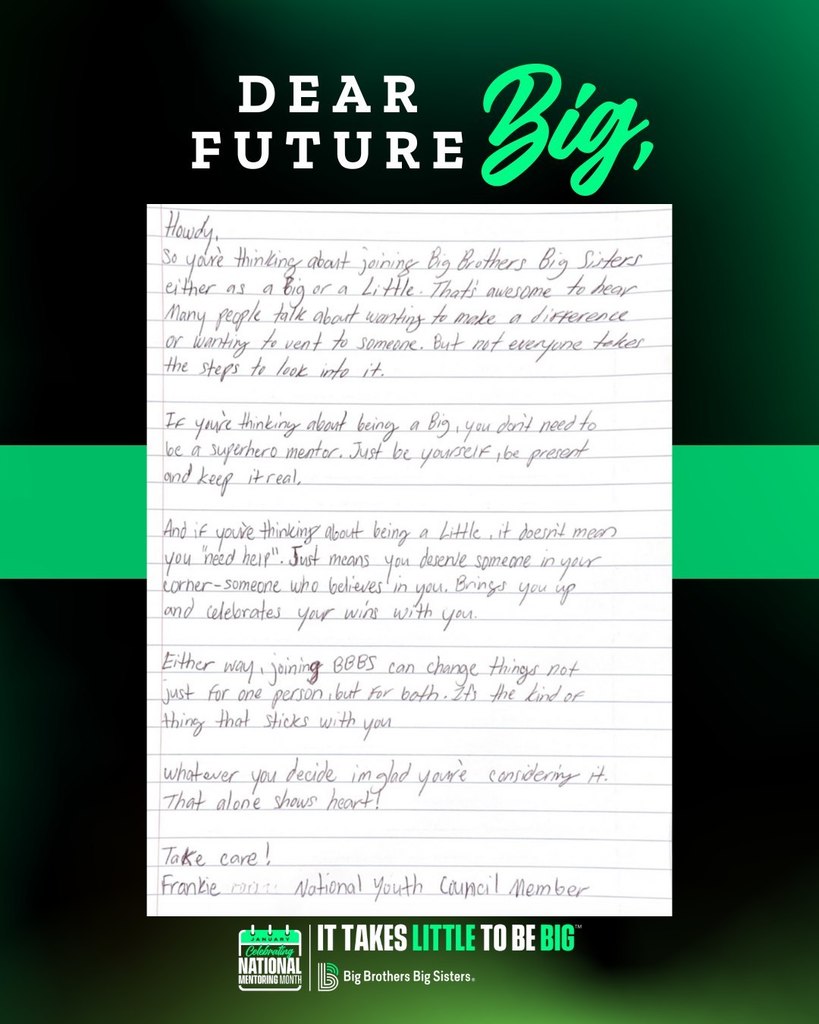 DEAR
FUTURE Big,
Howdy,
So you're thinking about joining Big Brothers Big Sisters
either as a Big or a Little. That's awesome to hear
Many people talk about wanting to make a difference
or wanting to vent to someone. But not everyone takes
the steps to look into it.
If you're thinking about being a Big, you don't need to
be a superhero mentor. Just be yourself, be present
and keep it real.
And if you're thinking about being a Little, it doesn't mean
you "need help". Just means you deserve someone in your
corner-someone who believes in you. Brings you up
and celebrates your wins with you.
Either way, joining BBBS can change things not
just for one person, but for both. It's the kind of
thing that sticks with you
whatever you decide im glad you're considering it.
That alone shows heart!
Take care!
Frankie National Youth Council Member
JANUARY
Celebrating
NATIONAL
MENTORING MONTH
IT TAKES LITTLE TO BE BIG™
Big Brothers Big Sisters®